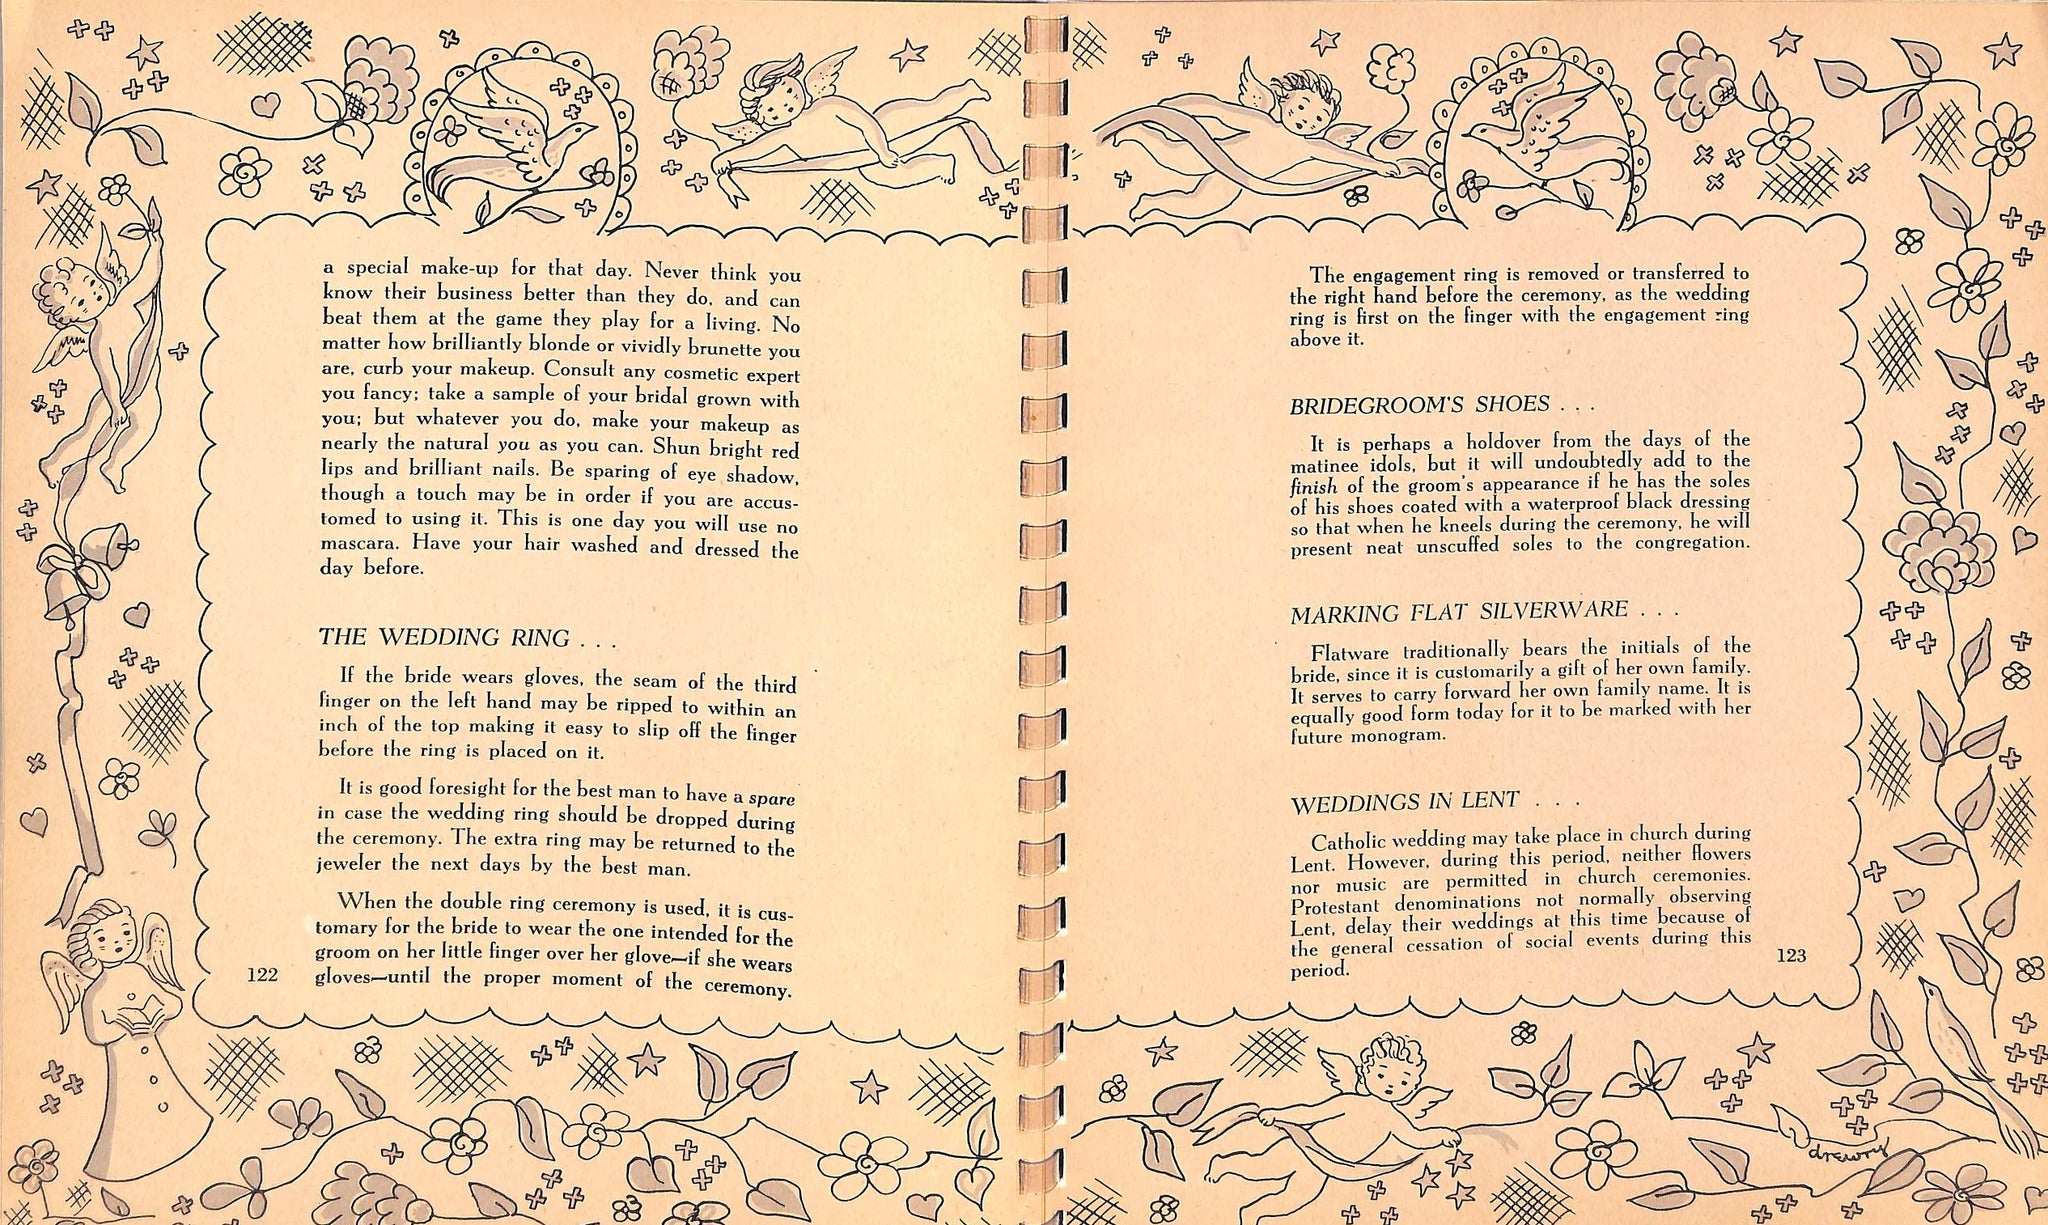 a special make-up for that day. Never think you
know their business better than they do, and can
beat them at the game they play for a living. No
matter how brilliantly blonde or vividly brunette you
are, curb your makeup. Consult any cosmetic expert
you fancy; take a sample of your bridal grown with
you; but whatever you do, make your makeup as
nearly the natural you as you can. Shun bright red
lips and brilliant nails. Be sparing of eye shadow,
though a touch may be in order if you are accus-
tomed to using it. This is one day you will use no
mascara. Have your hair washed and dressed the
day before.
THE WEDDING RING . . .
If the bride wears gloves, the seam of the third
finger on the left hand may be ripped to within an
inch of the top making it easy to slip off the finger
before the ring is placed on it.
It is good foresight for the best man to have a spare
in case the wedding ring should be dropped during
the ceremony. The extra ring may be returned to the
jeweler the next days by the best man.
When the double ring ceremony is used, it is cus-
tomary for the bride to wear the one intended for the
groom on her little finger over her glove—if she wears
gloves—until the proper moment of the ceremony.
122
The engagement ring is removed or transferred to
the right hand before the ceremony, as the wedding
ring is first on the finger with the engagement ring
above it.
BRIDEGROOM'S SHOES . . .
It is perhaps a holdover from the days of the
matinee idols, but it will undoubtedly add to the
finish of the groom's appearance if he has the soles
of his shoes coated with a waterproof black dressing
so that when he kneels during the ceremony, he will
present neat unscuffed soles to the congregation.
MARKING FLAT SILVERWARE . . .
Flatware traditionally bears the initials of the
bride, since it is customarily a gift of her own family.
It serves to carry forward her own family name. It is
equally good form today for it to be marked with her
future monogram.
WEDDINGS IN LENT . . .
Catholic wedding may take place in church during
Lent. However, during this period, neither flowers
nor music are permitted in church ceremonies.
Protestant denominations not normally observing
Lent, delay their weddings at this time because of
the general cessation of social events during this
period.
123
drewry